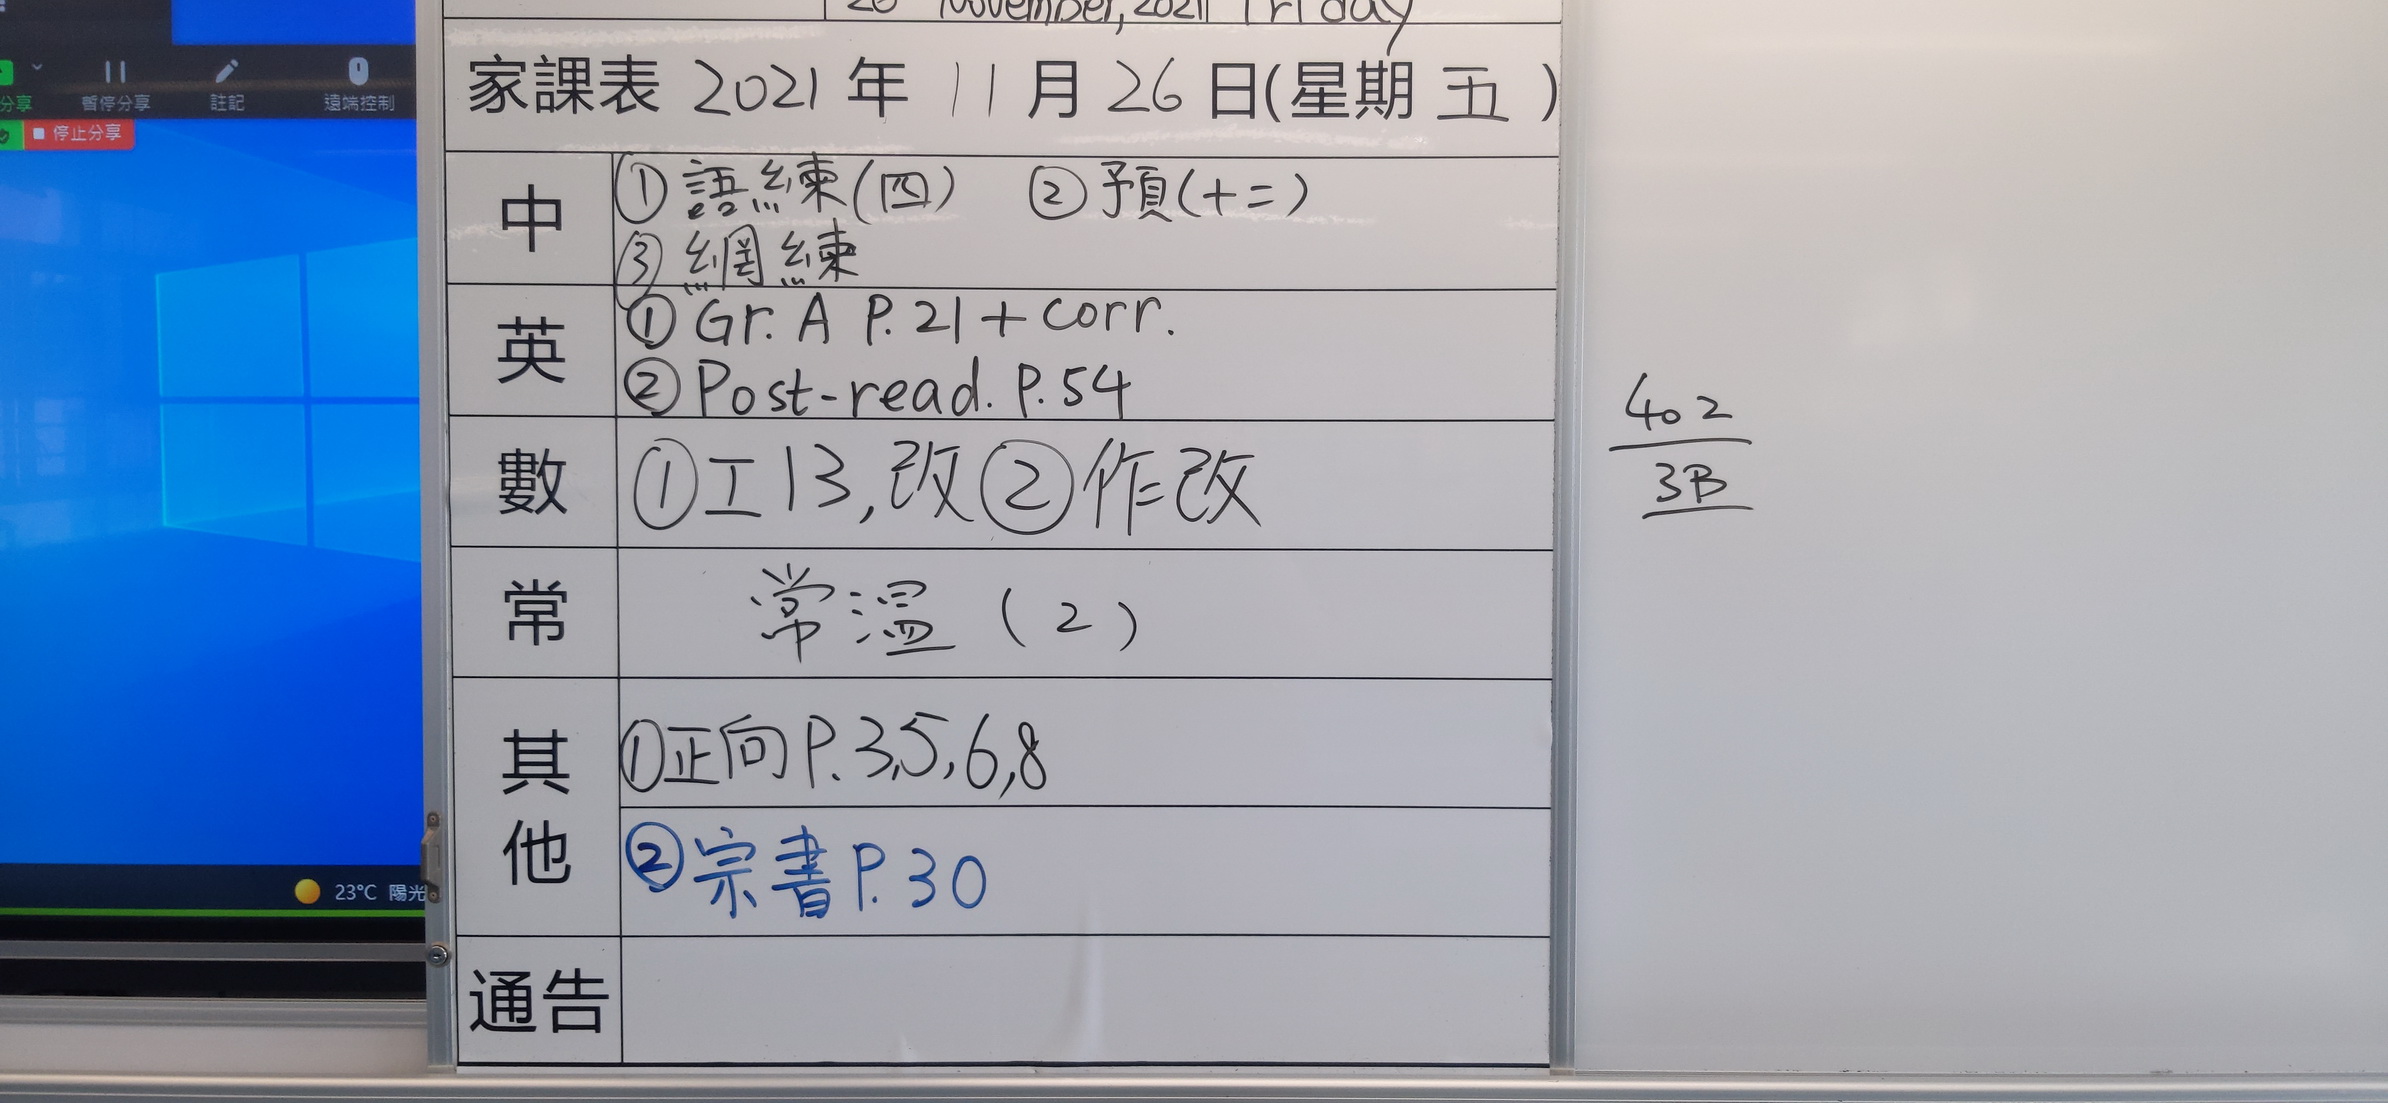 26 November, 2021 Friday
家課表 2021 年 11 月 26 日(星期 五 )
中
① 語練(四) ② 預(十二)
③ 網練
英
① Gr. A P.21 + corr.
② Post-read. P.54
數
① 工13,改 ② 作改
常
常溫 (2)
其他
① 正向 P.3,5,6,8
② 宗書 P.30
通告
402
3B
分享
暫停分享
註記
遠端控制
停止分享
23°C 陽光